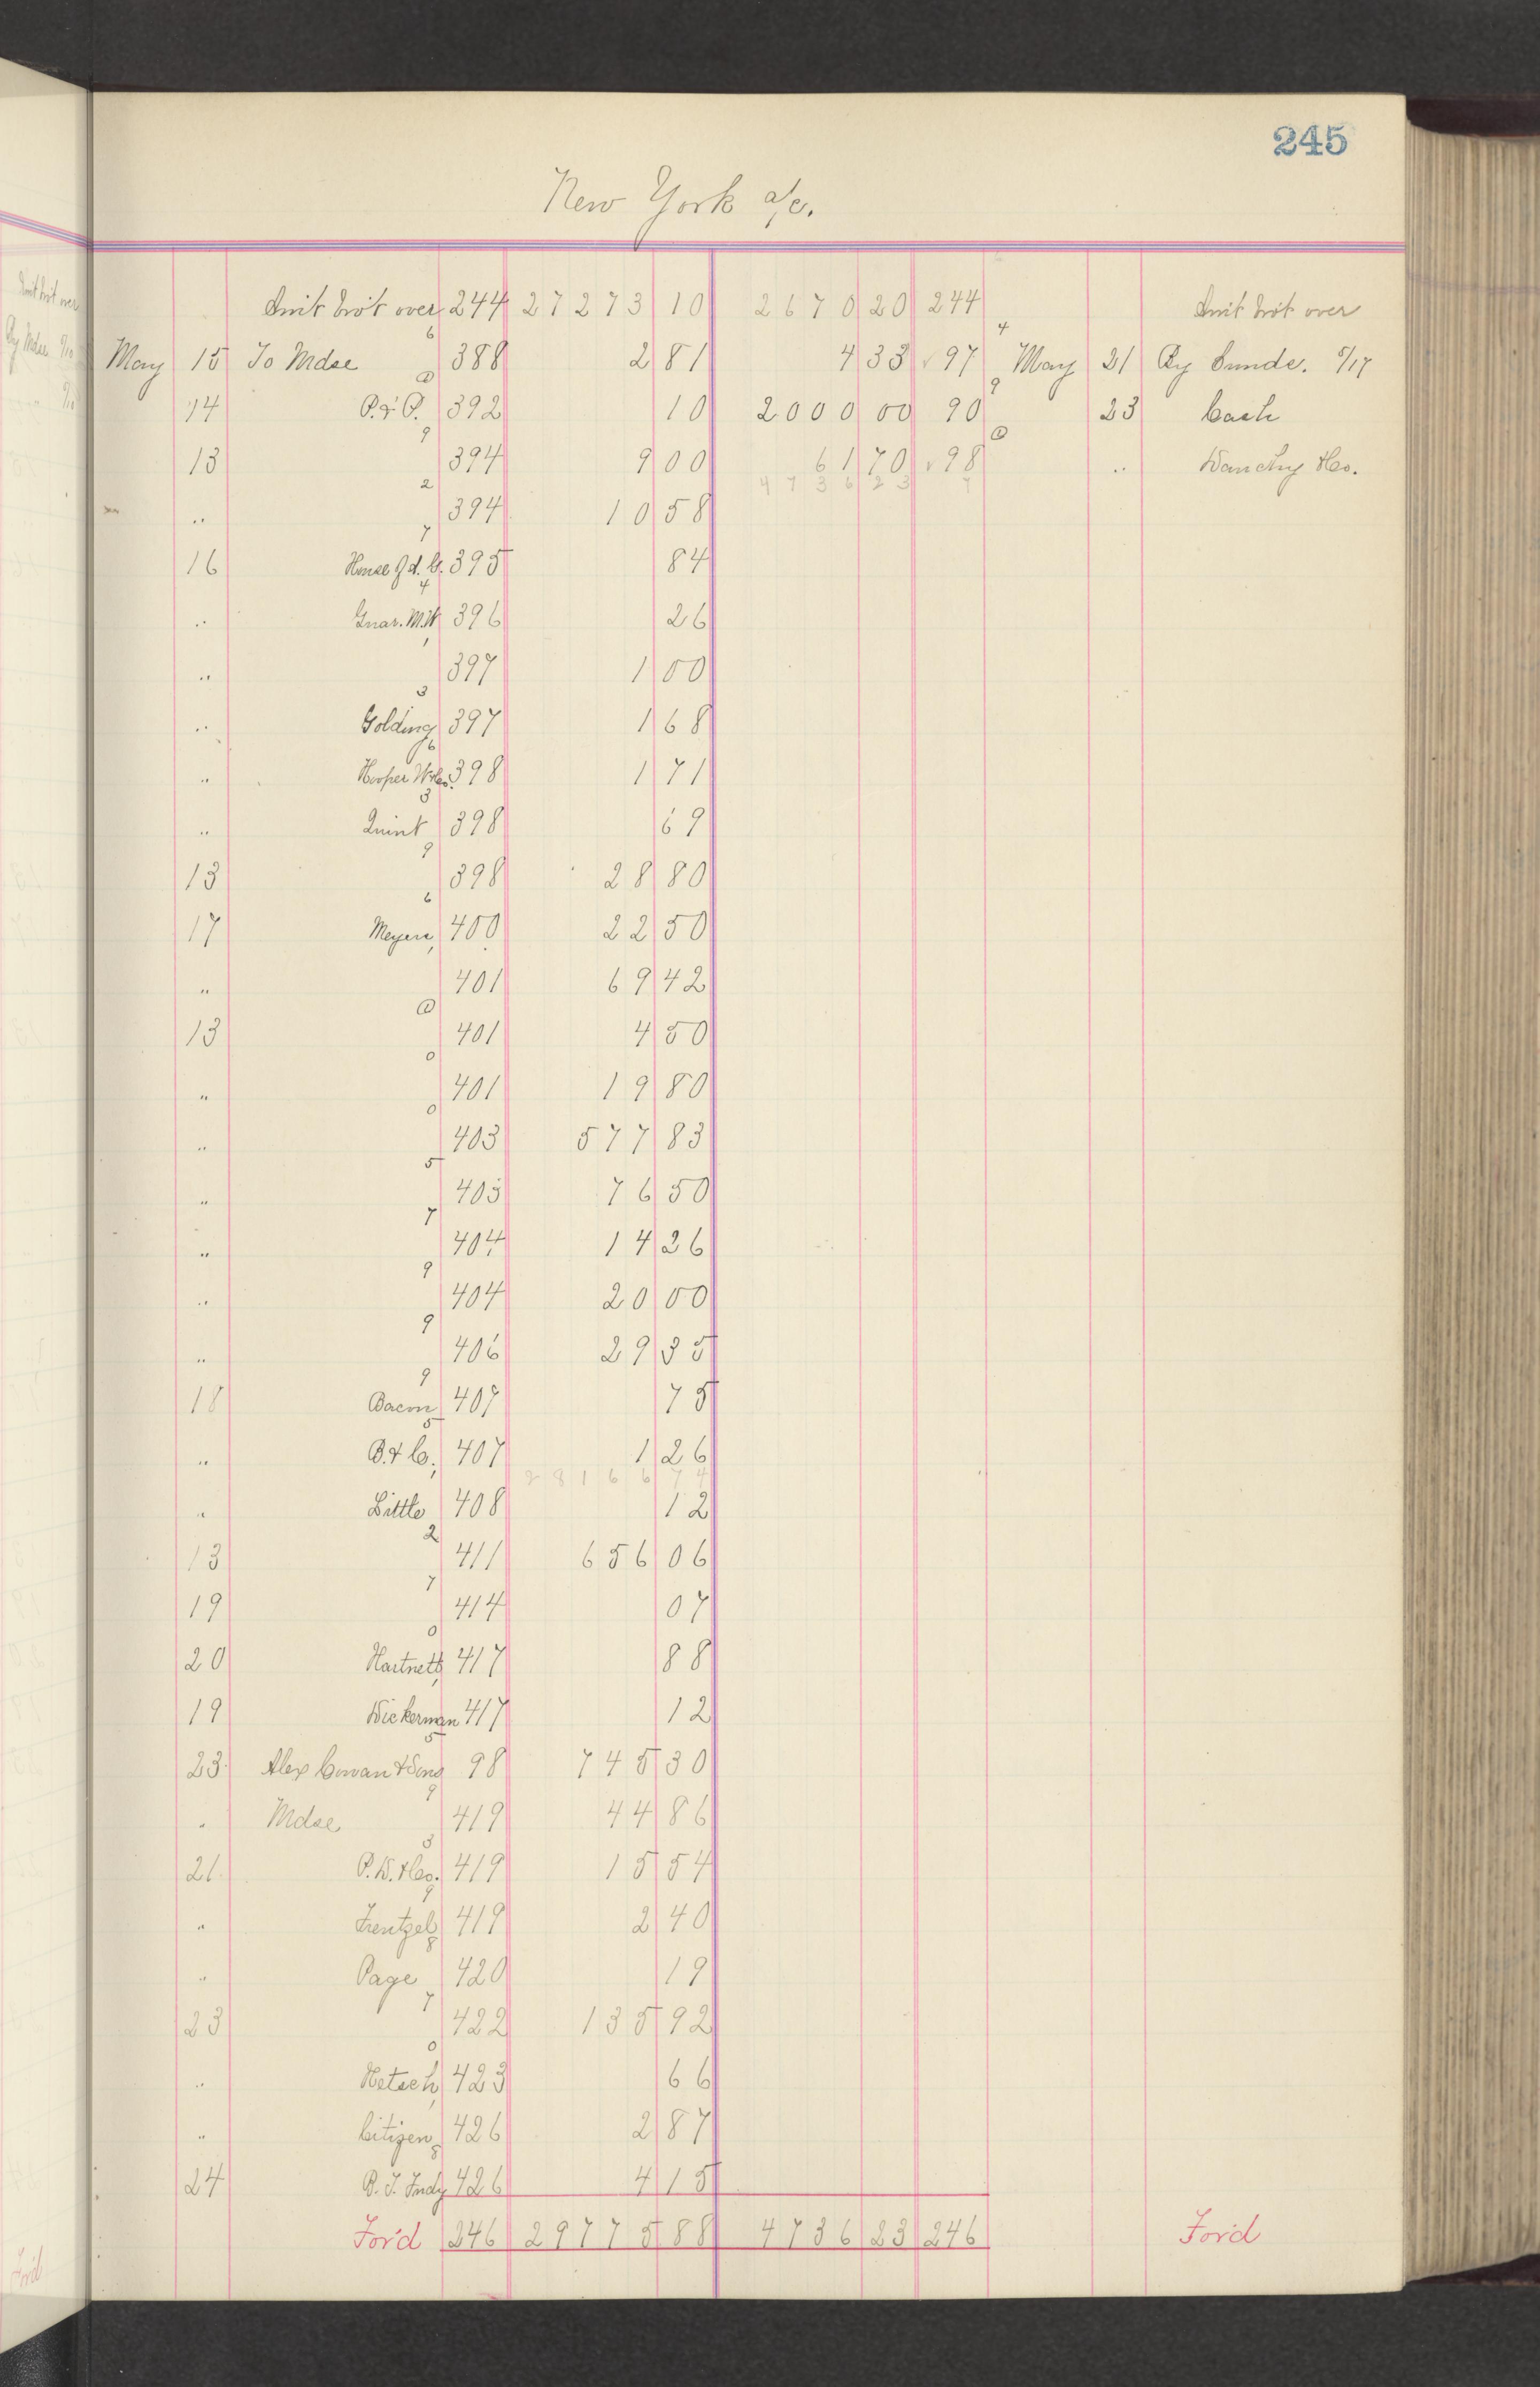 245
New York a/c.
Amt brot over 244 27273 10 2670 20 244 Amt brot over
May 15 To Mdse 388 2 81 4 33 97 May 21 By Sunds. 5/17
14 P. & P. 392 10 2000 00 90 23 Cash
13 394 9 00 61 70 98 " & Co.
4736 23
" 394 10 58
16 395 84
" 396 26
" 397 1 00
" Golding 397 1 68
" Hooper 398 1 71
" Quint 398 69
13 398 28 80
17 Meyers 400 22 50
" 401 69 42
13 401 4 50
" 401 19 80
" 403 577 83
" 403 76 50
" 404 14 26
" 404 20 00
" 406 29 35
18 Bacon 407 75
" B. & C. 407 1 26
28166 74
" Little 408 12
13 411 656 06
19 414 07
20 Hartnett 417 88
19 Wickerman 417 12
23 Alex Cowan & Sons 98 745 30
" Mdse 419 44 86
21 P.W. & Co. 419 15 54
" Frentzel 419 2 40
" Page 420 19
23 422 135 92
" Hetsch 423 66
" Citizen 426 2 87
24 426 4 15
For'd 246 29775 88 4736 23 246 For'd